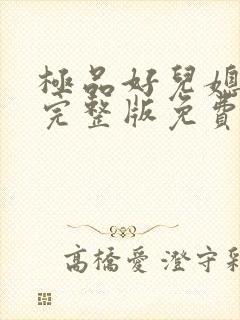 極品好兒媳
完整版免費
高橋愛 澄守彩